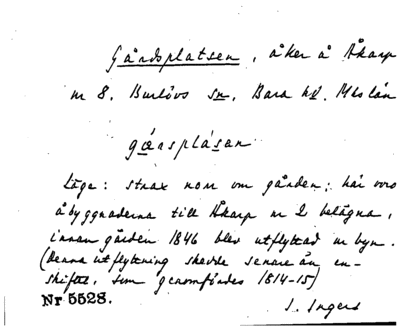 Gårdsplatsen, åker å Åkarp
nr 8, Burlövs sn, Bara hd. Mhs län
gǽrsplásan
Läge: strax norr om gården; här voro
åbyggnaderna till Åkarp nr 2 belägna,
innan gården 1846 blev utflyttad ur byn.
(Denna utflyttning skedde senare än en-
skiftet, som genomfördes 1814-15)
Nr 5528.
I. Ingers